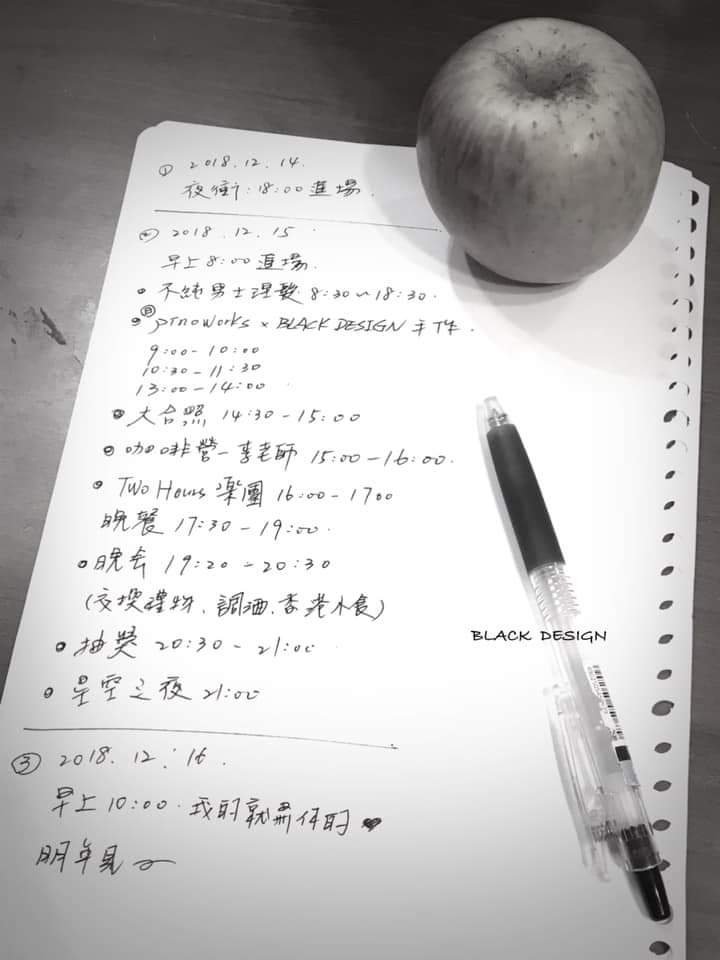 ① 2018.12.14.
夜衝:18:00進場.
② 2018.12.15.
早上8:00進場.
• 不純男士理髮 8:30~18:30.
• 日 pinoworks x BLACK DESIGN 手作.
9:00-10:00
10:30-11:30
13:00-14:00.
• 大合照 14:30-15:00
• 咖啡營-李老師 15:00-16:00.
• TWO Hours 楽團 16:00-1700
晚餐 17:30-19:00.
• 晚会 19:20-20:30
(交換禮物、調酒、香港小食)
• 抽獎 20:30-21:00.
• 星空之夜 21:00
BLACK DESIGN
③ 2018.12.16.
早上10:00.我的就是你的
明年見~